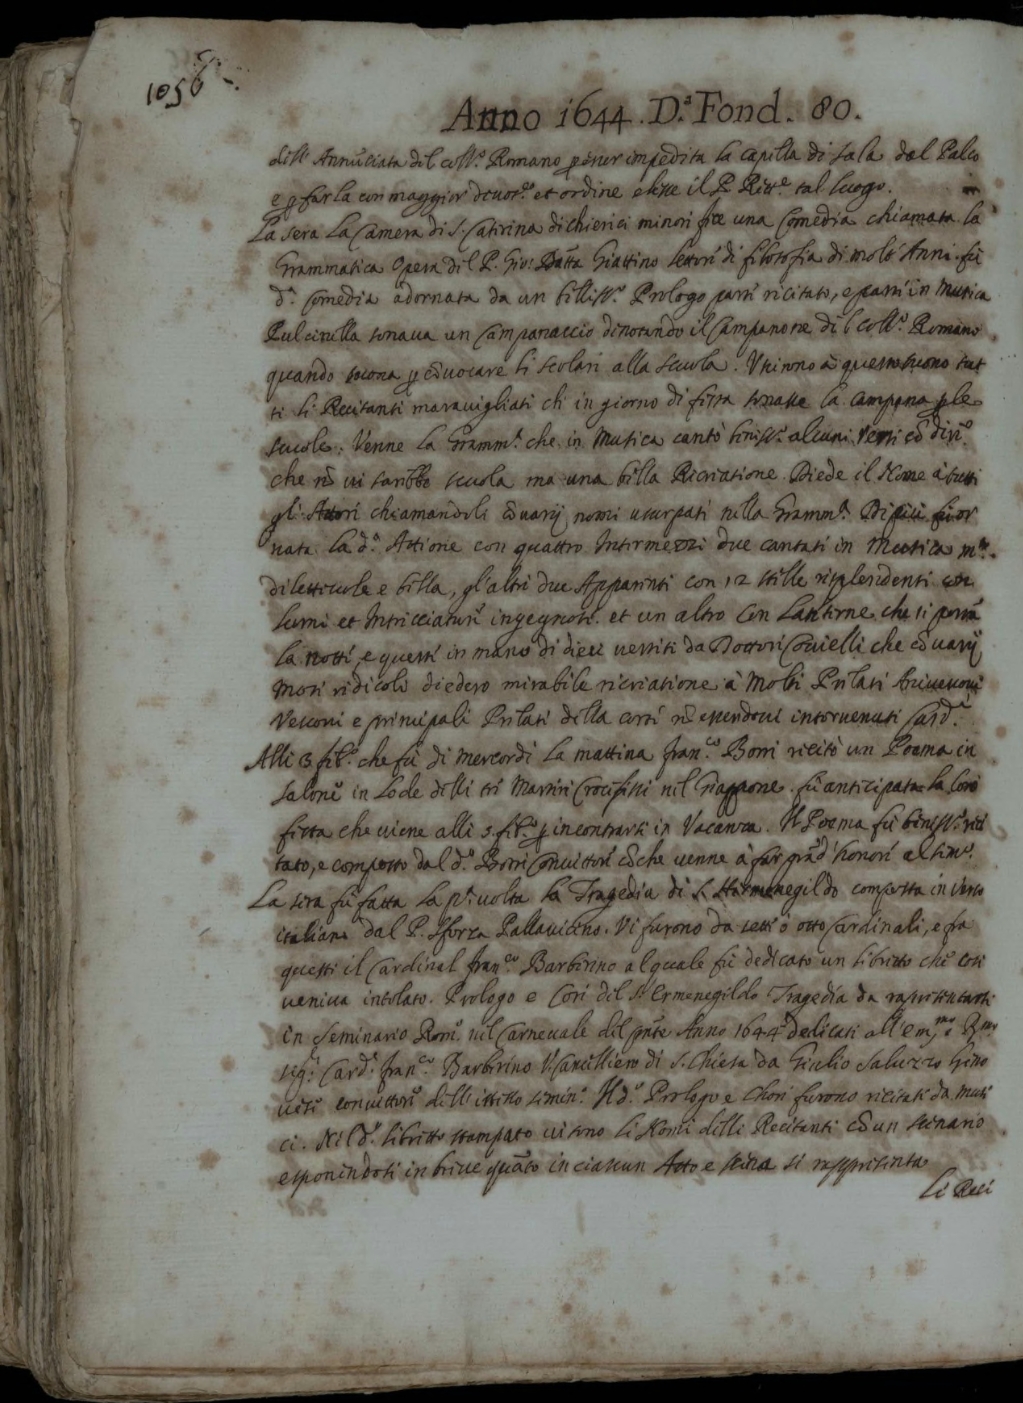 1056
Anno 1644. D.ª Fond. 80.
dell' Annũciata del Coll.º Romano ꝑ esser impedita la Capella di sala dal Palco
e ꝑ farla con maggior deuot.e et ordine elesse il P. Rett.e tal luogo.
La sera la Camera di S. Caterina di chierici minori fece una Comedia chiamata la
Grammatica Opera del P. Gio: Batta Giattino lettore di filosofia di molti Anni. fù
d.ª Comedia adornata da un belliss.º Prologo parte recitato, e parte in Musica
Pulcinella sonaua un Campanaccio dinotando il Campanone del Coll.º Romano
quando suona ꝑ cõuocare li scolari alla scuola. Vscirono à questo suono tut
ti li Recitanti marauigliati che in giorno di festa sonasse la campana ꝑ le
scuole. Venne la Gramm.ª che in Musica cantò beniss.º alcuni Versi cõ dire
che nõ ui sarebbe scuola ma una bella Ricreatione. Diede il Nome à tutti
gl' Attori chiamandoli cõ uarij nomi usurpati nella Gramm.ª Di più fù or
nata la d.ª Attione con quattro Intermezzi due cantati in Musica m.to
diletteuole e bella, gl'altri due Apparenti con 12 stelle risplendenti con
lumi et Intricciature ingegnose. et un altro con Lanterne che si porta
la notte, e queste in mano di dieci uestiti da Dottori Couielli che cõ uarij
Motti ridicoli diedero mirabile ricreatione à Molti Prelati Arciuescoui
Vescoui e principali Prelati della corte nõ essendoui interuenuti Card.i
Alli 3 feb.º che fù di Mercordi la mattina Fran.co Borri recitò un Poema in
salone in Lode delli tre Martiri Crocifissi nel Giappone. fù anticipata la loro
festa che uiene alli 5. feb.º ꝑ incontrarsi in Vacanza. Il Poema fù beniss.º reci
tato, e composto dal d.º Borri Conuittore cõ che uenne à far grãd' honore al sem.º
La sera fù fatta la p.ª uolta la Tragedia di S. Hermenegildo composta in uerso
italiano dal P. Sforza Pallauicino. Vi furono da sette ò otto Cardinali, e fra
questi il Cardinal Fran.co Barberino al quale fù dedicato un libretto che così
ueniua intolato. Prologo e Cori del S. Ermenegildo Tragedia da rappresentarsi
in Seminario Rom.º nel Carneuale del pñte Anno 1644 dedicati all' Em.mo e R.mo
sig.r Card.l Fran.co Barberino V. Cancelliero di S. Chiesa da Giulio Saluzzo Geno
uese conuittore dell' istesso semin.º Il d.º Prologo e Chori furono recitati da musi
ci. Nel d.º libretto stampato ui sono li Nomi delli Recitanti cõ un scenario
esponendosi in breue quãto in ciascun Atto e scena si rappresenta
Li Reci